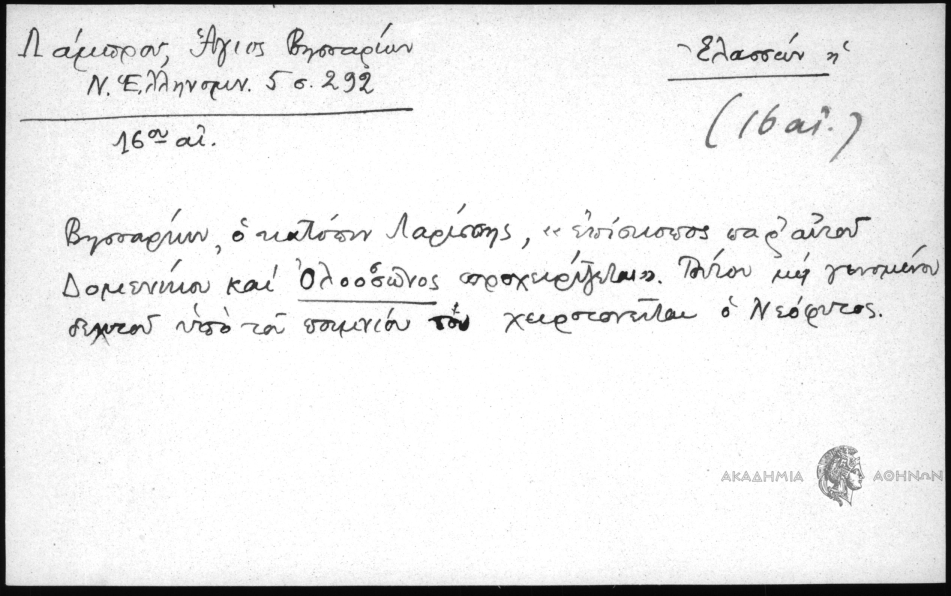 Λάμπρος, Ἅγιος Βησσαρίων
Ν. Ἑλληνομν. 5 σ. 292
16ου αἰ.
Ἐλασσών ἡ
(16 αἰ.)
Βησσαρίων, ὁ κατόπιν Λαρίσσης, «ἐπίσκοπος παρ' αὐτοῦ
Δομενίκου καὶ Ὀλοοσῶνος προχειρίζεται». Τούτου μὴ γενομένου
δεκτοῦ ὑπὸ τοῦ ποιμνίου του χειροτονεῖται ὁ Νεόφυτος.
ΑΚΑΔΗΜΙΑ ΑΘΗΝΩΝ